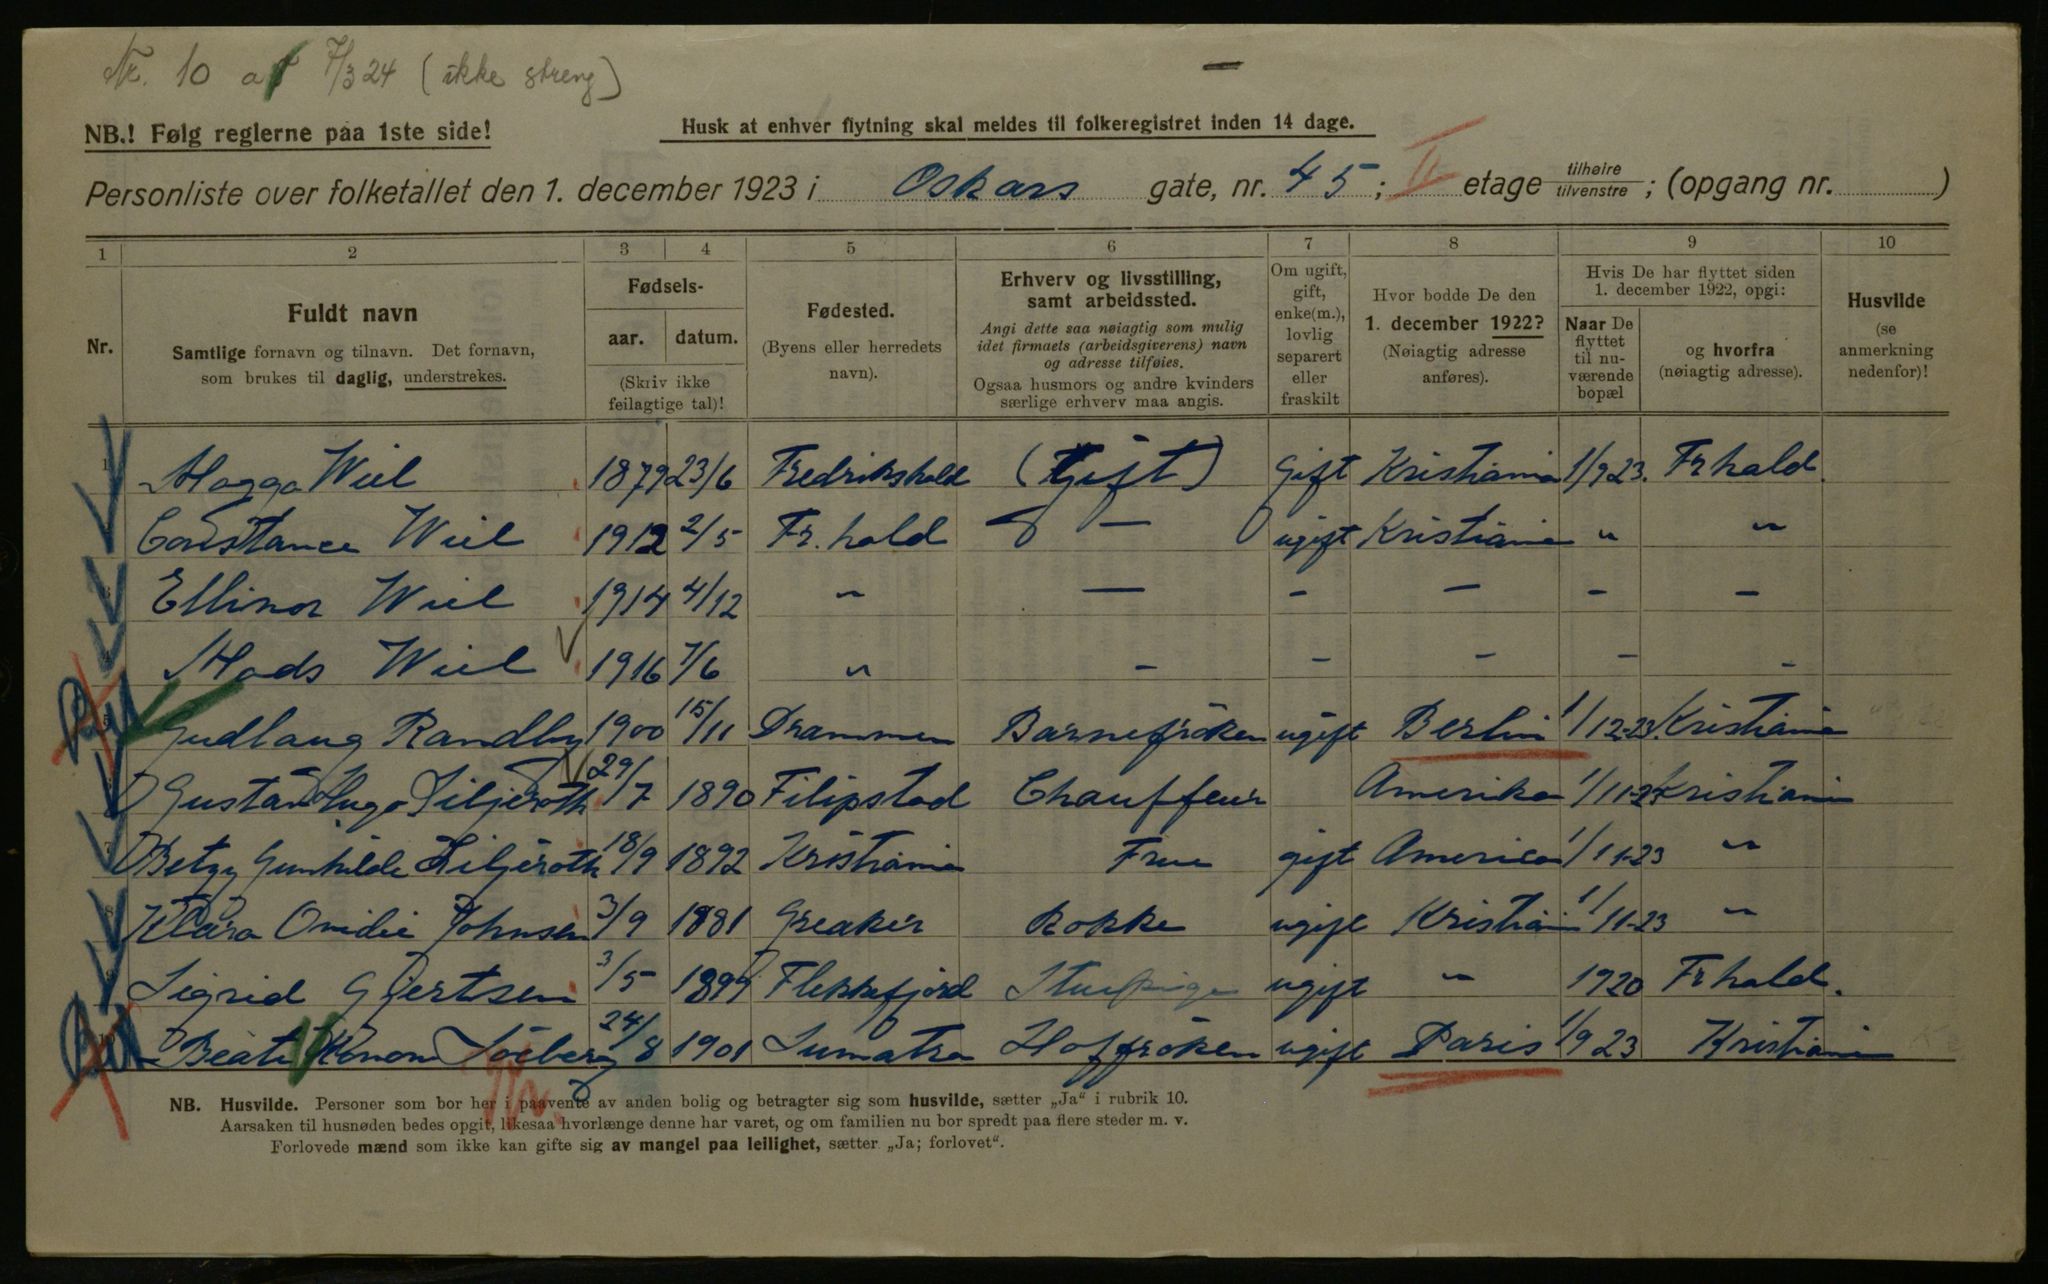 Nr. 10 af 7/3 24 (ikke streng)
NB.! Følg reglerne paa 1ste side!
Husk at enhver flytning skal meldes til folkeregistret inden 14 dage.
Personliste over folketallet den 1. december 1923 i Oskars gate, nr. 45; II etage tilhøire tilvenstre; (opgang nr. )
1 2 3 4 5 6 7 8 9 10
Nr.
Fuldt navn
Samtlige fornavn og tilnavn. Det fornavn,
som brukes til daglig, understrekes.
Fødsels-
aar. datum.
(Skriv ikke
feilagtige tal)!
Fødested.
(Byens eller herredets
navn).
Erhverv og livsstilling,
samt arbeidssted.
Angi dette saa nøiagtig som mulig
idet firmaets (arbeidsgiverens) navn
og adresse tilføies.
Ogsaa husmors og andre kvinders
særlige erhverv maa angis.
Om ugift,
gift,
enke(m.),
lovlig
separert
eller
fraskilt
Hvor bodde De den
1. december 1922?
(Nøiagtig adresse
anføres).
Hvis De har flyttet siden
1. december 1922, opgi:
Naar De
flyttet
til nu-
værende
bopæl
og hvorfra
(nøiagtig adresse).
Husvilde
(se
anmerkning
nedenfor)!
1 Magga Wiel 1879 23/6 Fredrikshald (Gift) Gift Kristiania 1/9 23. Fr hald.
Constance Wiel 1912 2/5 Fr. hald — ugift Kristiania " "
Ellinor Wiel 1914 4/12 " — - - - -
4 Mads Wiel 1916 7/6 " - - - - -
5 Gudlaug Randby 1900 15/11 Drammen Barnefröken ugift Berlin 1/12-23. Kristiania
Gustav Hugo Liljeroth 29/7 1890 Filipstad Chauffeur Amerika 1/11-23 Kristiania
7 Betzy Gunhilde Liljeroth 18/9 1892 Kristiania Frue gift America 1/11-23 "
8 Klara Ovidie Johnsen 3/9 1881 Greaker Kokke ugift Kristiania 1/11-23 "
9 Sigrid Gjertsen 3/5 1899 Flekkefjord Stuepige ugift " 1920 Fr hald.
10 Beate Konow Söeberg 24/8 1901 Sumatra Hoffröken ugift Paris 1/9 23 Kristiania
NB. Husvilde. Personer som bor her i paavente av anden bolig og betragter sig som husvilde, sætter „Ja“ i rubrik 10.
Aarsaken til husnøden bedes opgit, likesaa hvorlænge denne har varet, og om familien nu bor spredt paa flere steder m. v.
Forlovede mænd som ikke kan gifte sig av mangel paa leilighet, sætter „Ja; forlovet“.